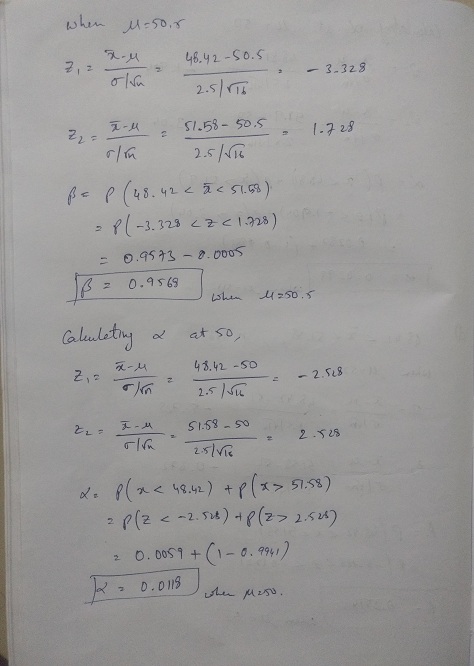 when μ=50.5
Z₁ = (x̄-μ)/(σ/√n) = (48.42-50.5)/(2.5/√16) = -3.328
Z₂ = (x̄-μ)/(σ/√n) = (51.58-50.5)/(2.5/√16) = 1.728
β = P(48.42 < x̄ < 51.58)
= P(-3.328 < z < 1.728)
= 0.9573 - 0.0005
β = 0.9568 when μ=50.5
Calculating α at 50,
Z₁ = (x̄-μ)/(σ/√n) = (48.42-50)/(2.5/√16) = -2.528
Z₂ = (x̄-μ)/(σ/√n) = (51.58-50)/(2.5/√16) = 2.528
α = P(x < 48.42) + P(x > 51.58)
= P(Z < -2.528) + P(Z > 2.528)
= 0.0059 + (1-0.9941)
α = 0.0118 when μ=50.